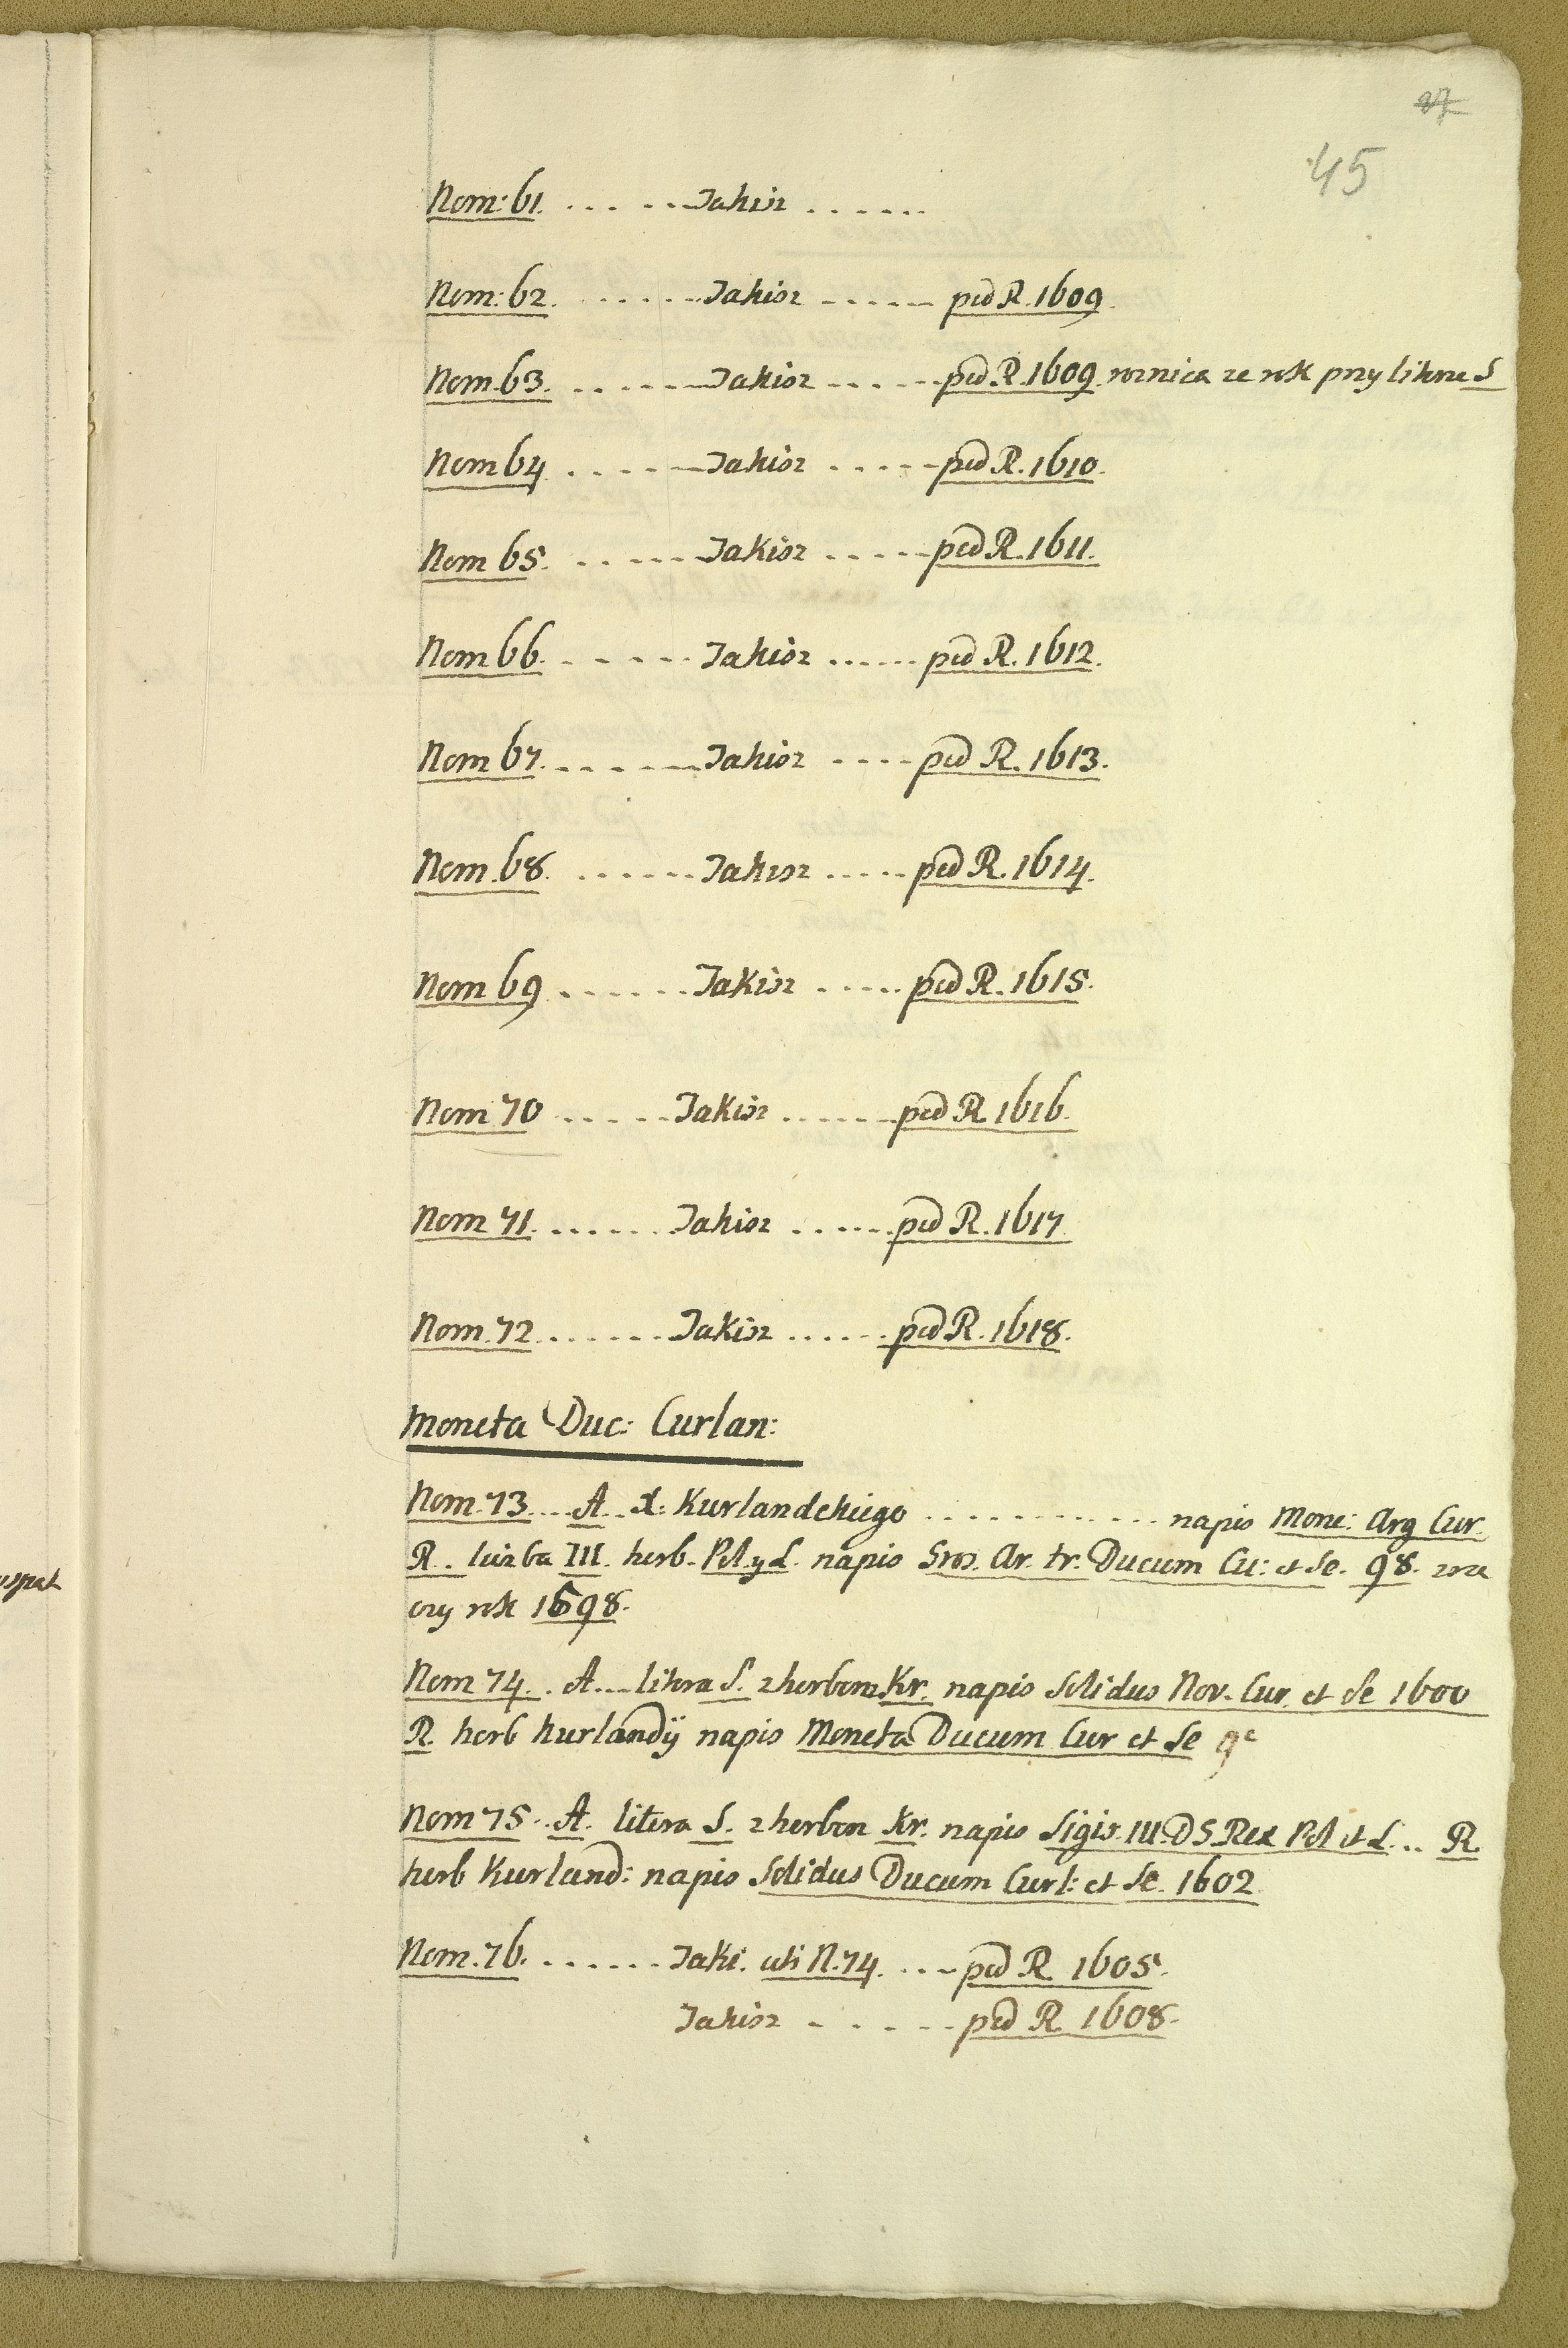 45
Nom: 61. . . . . . . Jakisz . . . . . .
Nom: 62. . . . . . . Jakisz . . . . . . pod R. 1609.
Nom. 63. . . . . . . Jakisz . . . . . . pod R. 1609 roznica ze rok przy literze S
Nom 64 . . . . . . Jakisz . . . . . pod R. 1610.
Nom 65. . . . . . Jakisz . . . . . pod R. 1611.
Nom 66. . . . . . Jakisz . . . . . . pod R. 1612.
Nom 67. . . . . . . Jakisz . . . . pod R. 1613.
Nom. 68. . . . . . . Jakisz . . . . . pod R. 1614.
Nom 69 . . . . . . Jakisz . . . . . pod R. 1615.
Nom 70 . . . . . Jakisz . . . . . . pod R 1616.
Nom 71. . . . . . . Jakisz . . . . . pod R. 1617
Nom. 72 . . . . . . Jakisz . . . . . . pod R. 1618.
Moneta Duc: Curlan:
Nom. 73. . . . A. . X: Kurlandckiego . . . . . . . . . . . . napis Mone: Arg Cur.
R. . liczba III. herb. Pol. y L. napis Gros. Ar. tr. Ducum Cu: et Se. 98. zna
czy rok 1598.
Nom 74. . A. . . . litera S. z herbem Kr. napis Solidus Nov. Cur. et Se 1600
R. herb Kurlandÿ napis Moneta Ducum Cur et Se
Nom 75. . A. litera S. z herbem Kr. napis Sigis. III. D G Rex Pol et L. . . R
herb Kurland: napis Solidus Ducum Curl: et Se. 1602
Nom. 76. . . . . . . Jaki. uti N. 74. . . . pod R 1605.
Jakisz . . . . . pod R 1608.